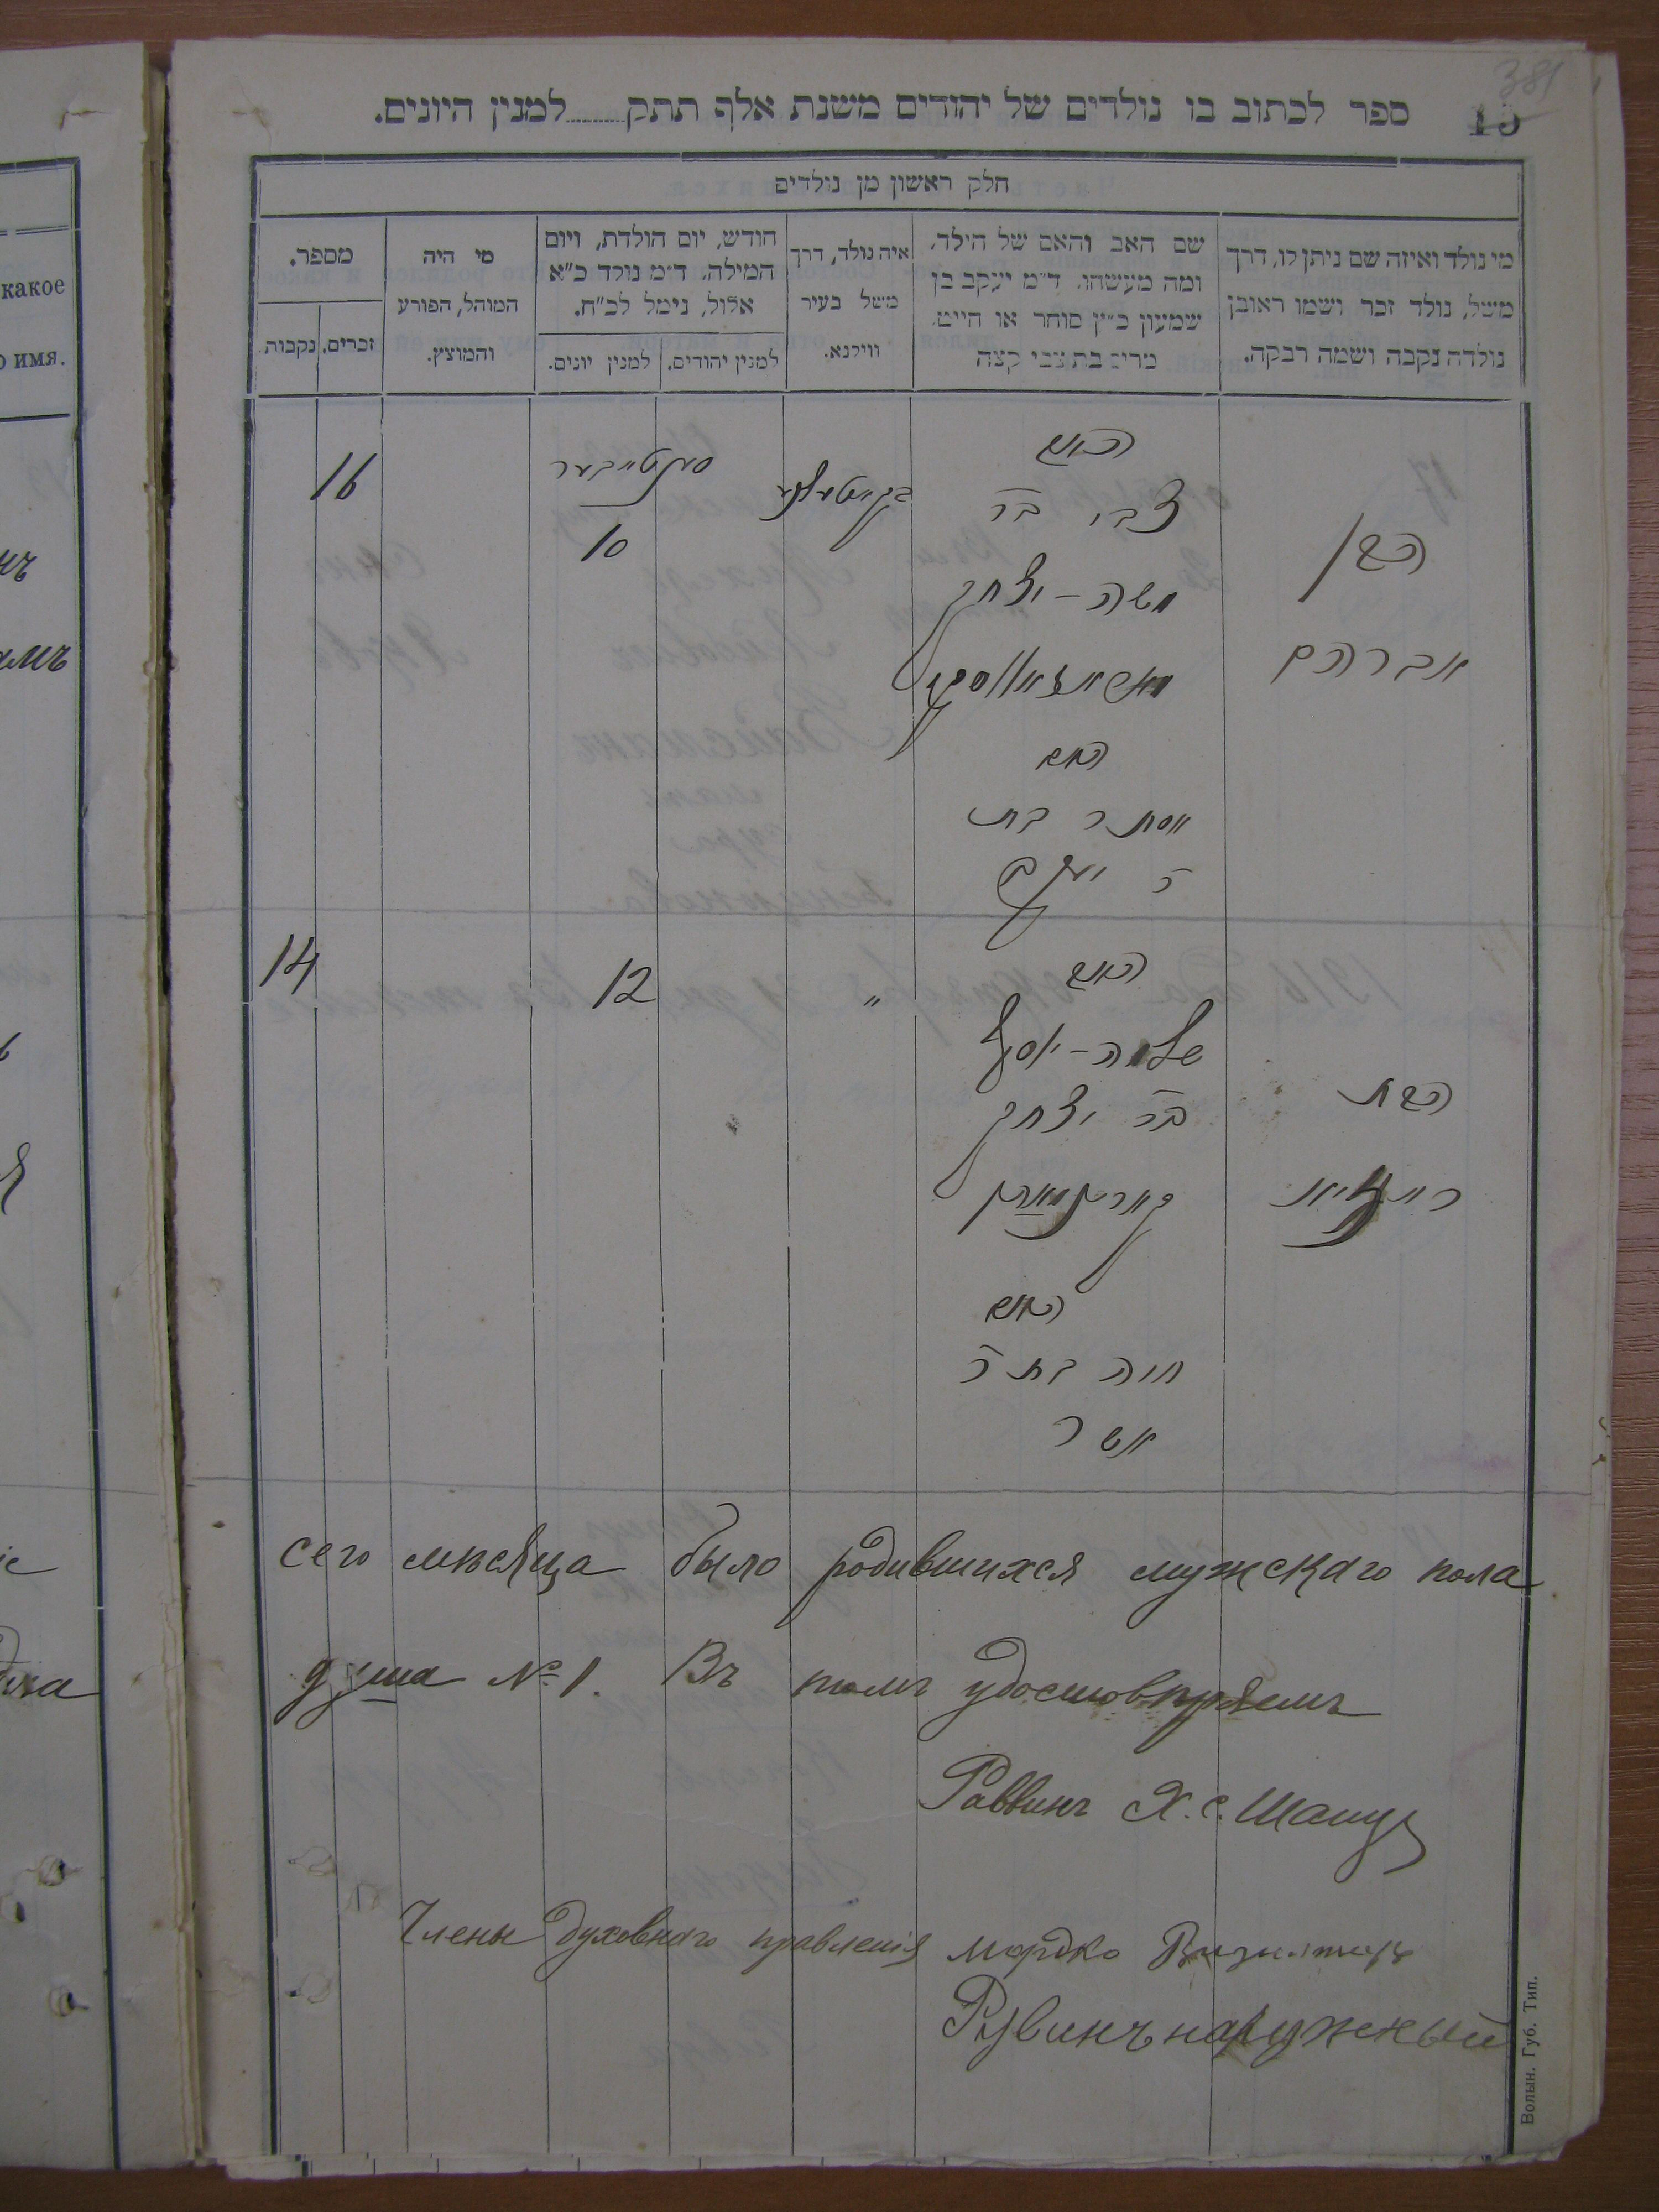 381
15
ספר לכתוב בו נולדים של יהודים משנת אלף תתק........למנין היונים.
חלק ראשון מן נולדים
מי נולד ואיזה שם ניתן לו, דרך
משל, נולד זכר ושמו ראובן
נולדה נקבה ושמה רבקה.
שם האב והאם של הילד,
ומה מעשהו. ד״מ יעקב בן
שמעון כ״ץ סוחר או חייט,
מרים בת צבי קצה
איה נולד, דרך
משל בעיר
ווילנא.
חודש, יום הולדת, ויום
המילה. ד״מ נולד כ״א
אלול, נימל לכ״ח.
למנין יהודים.
למנין יונים.
מי היה
המוהל, הפורע
והמוצץ.
מספר.
זכרים.
נקבות.
הבן
אברהם
האיש
צבי בר
משה-יצחק
האש
אסתר בת
ר יעקב
סענטיבער
10
16
הבת
האיש
שלמה-יוסף
בר יצחק
האש
חיה בת ר
אשר
"
12
14
сего мѣсяца было родившихся мужскаго пола
душа № 1. Въ томъ удостовѣряемъ
Раввинъ Х. С. Шапу
Члены духовнаго правленія Мордко
Рувинъ наружный
Волын. Губ. Тип.
какое
о имя.